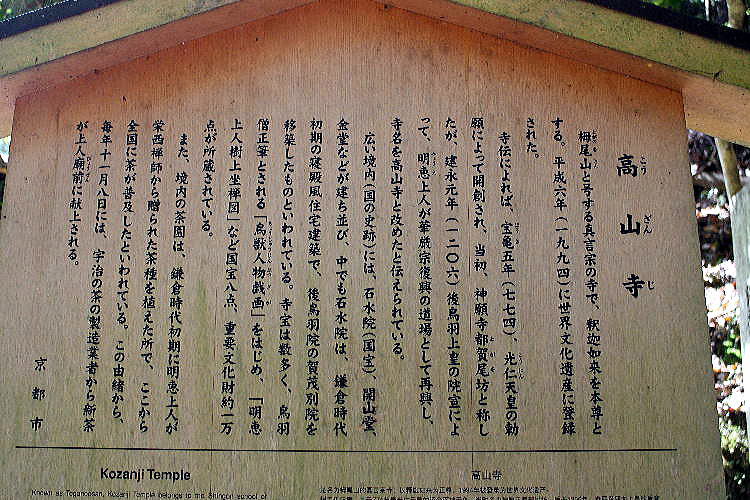 高山寺
こう ざん じ
栂尾山と号する真言宗の寺で、釈迦如来を本尊と
する。平成六年(一九九四)に世界文化遺産に登録
された。
寺伝によれば、宝亀五年(七七四)、光仁天皇の勅
願によって開創され、当初、神願寺都賀尾坊と称し
たが、建永元年(一二〇六)後鳥羽上皇の院宣によ
って、明恵上人が華厳宗復興の道場として再興し、
寺名を高山寺と改めたと伝えられている。
広い境内(国の史跡)には、石水院(国宝)、開山堂、
金堂などが建ち並び、中でも石水院は、鎌倉時代
初期の寝殿風住宅建築で、後鳥羽院の賀茂別院を
移築したものといわれている。寺宝は数多く、鳥羽
僧正筆とされる「鳥獣人物戯画」をはじめ、「明恵
上人樹上坐禅図」など国宝八点、重要文化財約一万
点が所蔵されている。
また、境内の茶園は、鎌倉時代初期に明恵上人が
栄西禅師から贈られた茶種を植えた所で、ここから
全国に茶が普及したといわれている。この由緒から、
毎年十一月八日には、宇治の茶の製造業者から新茶
が上人廟前に献上される。
京都市
Kozanji Temple
Known as Toganoosan, Kozanji Temple belongs to the Shingon school of
高山寺